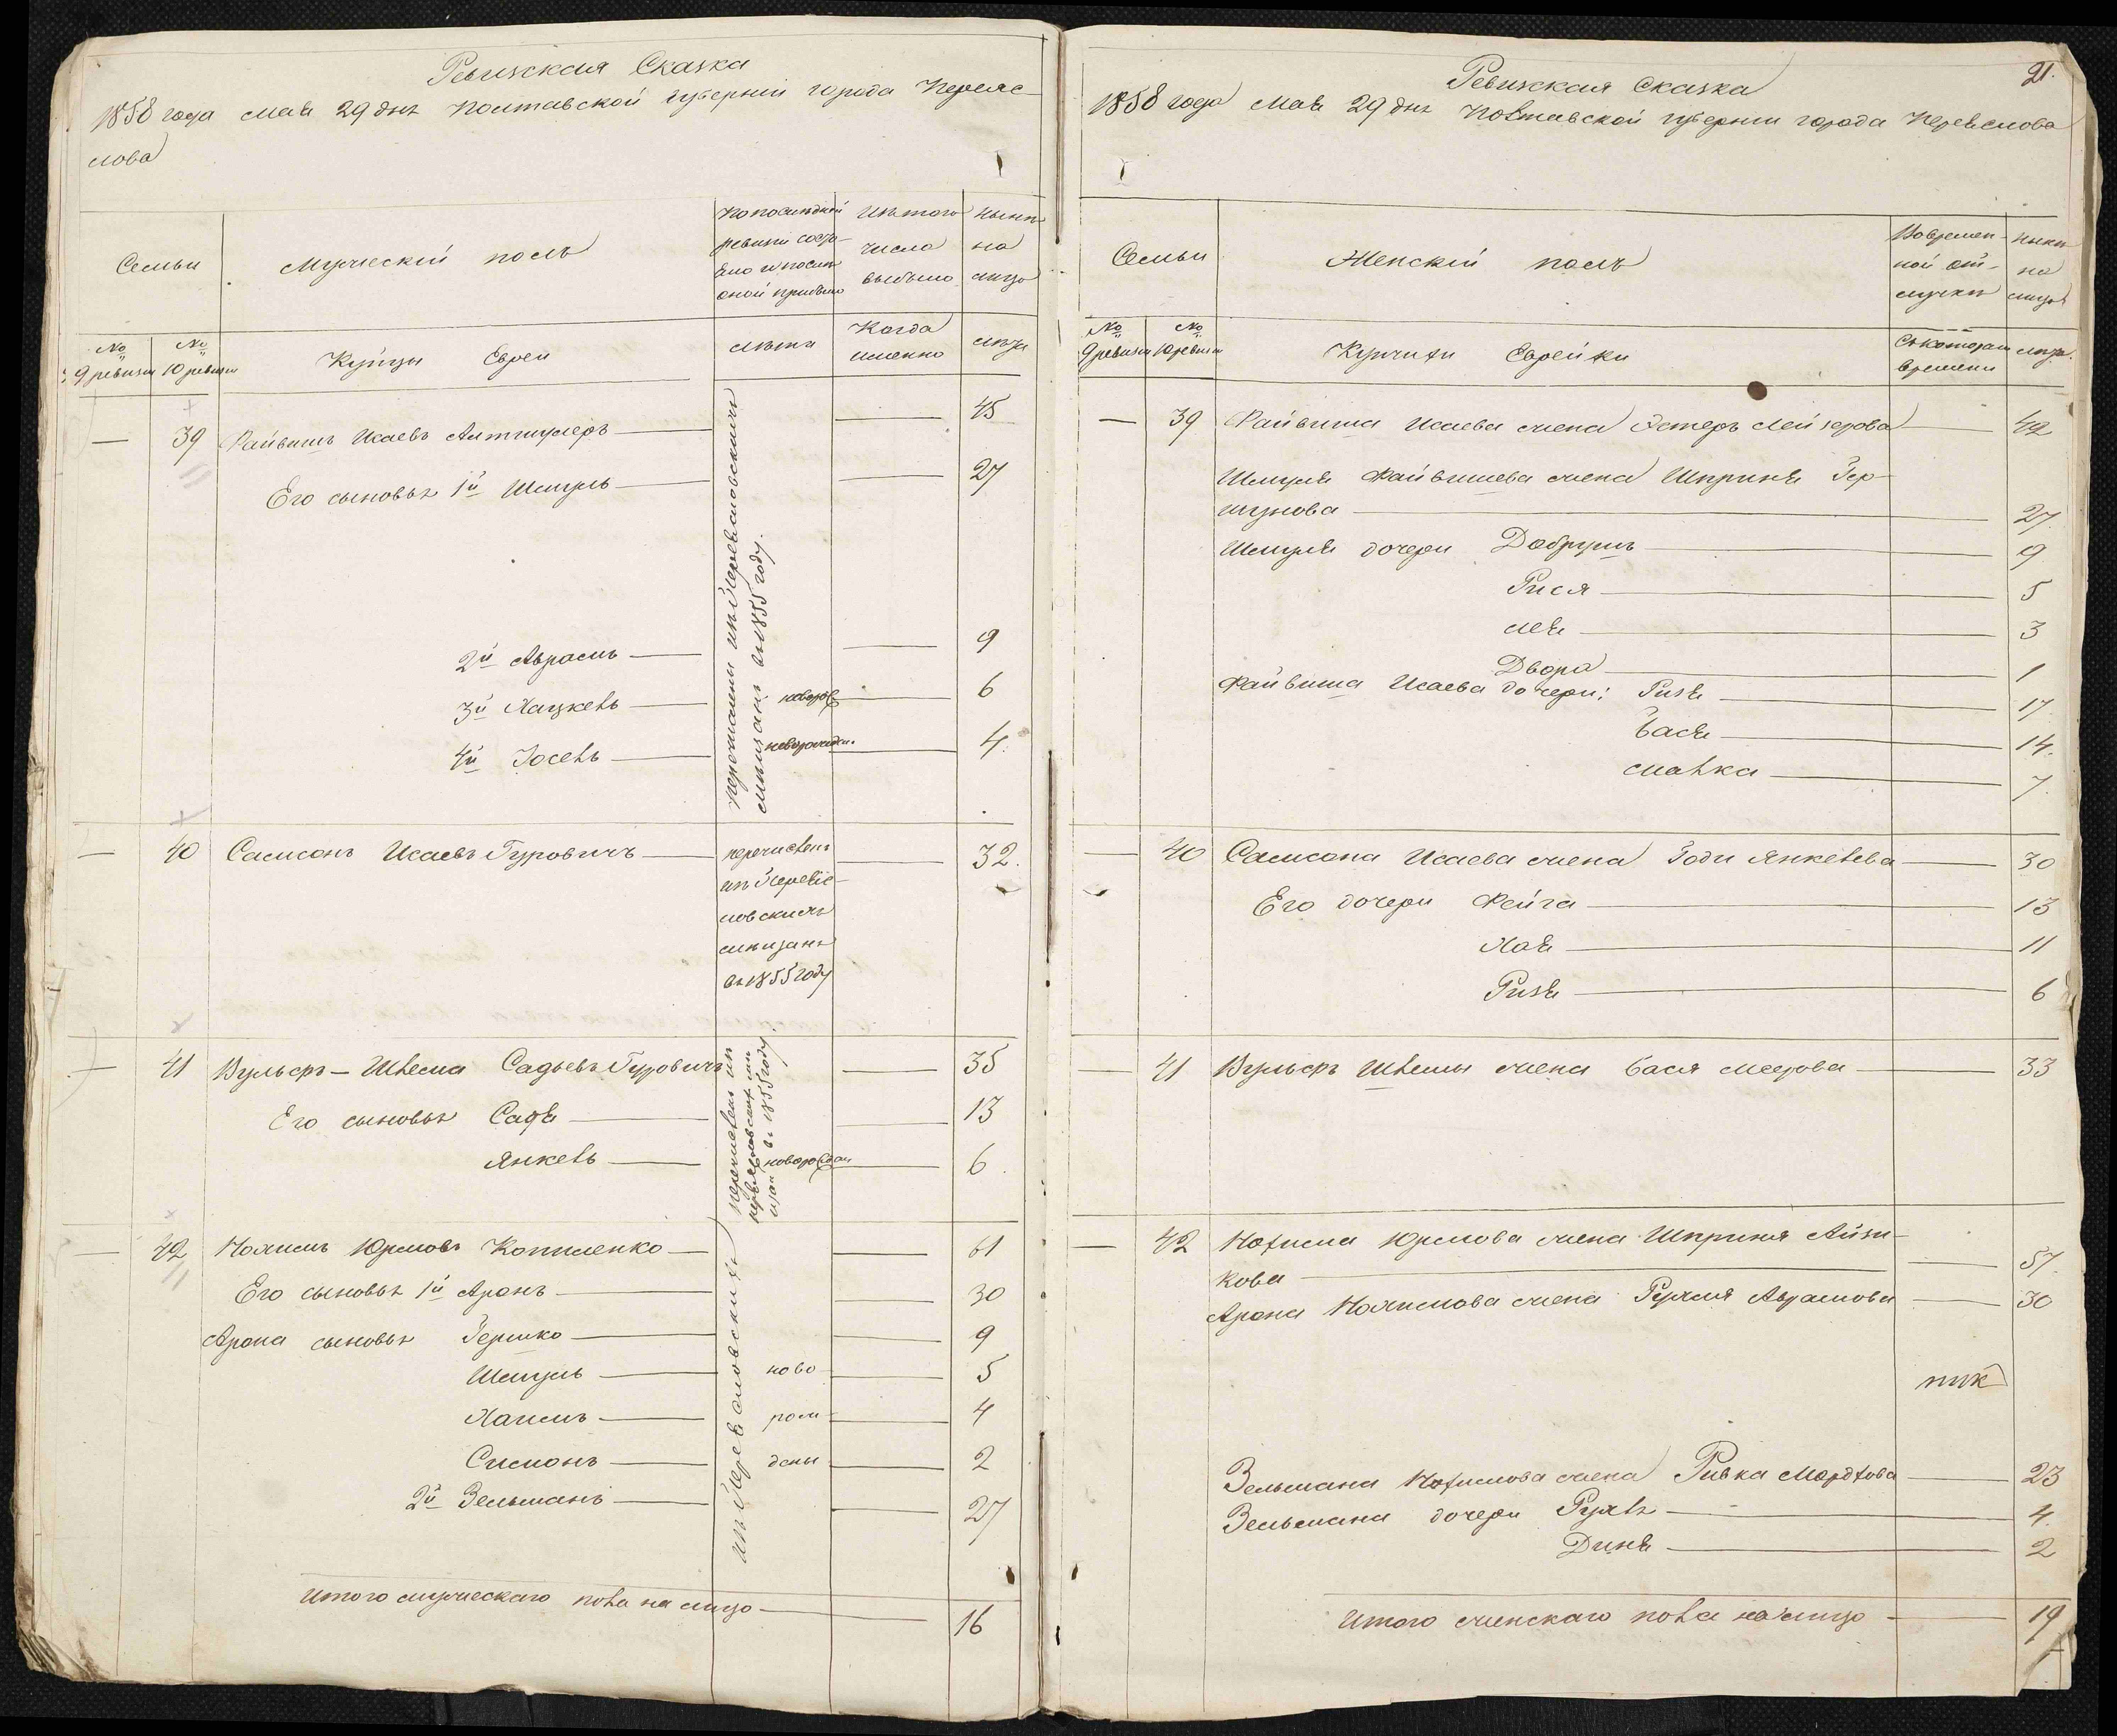 Ревизская Сказка
1858 года Мая 29 дня Полтавской губерніи города Переяс-
лова
Семьи
Мужескій полъ
По последней
ревизіи состо-
яло и после
оной прибыло
Изъ того
числа
выбыло
Ныне
на
лицо
№ 9 ревизіи
№ 10 ревизіи
Купцы Евреи
лета
Когда
именно
лета
— 39 Файвишъ Исаевъ Алтшулеръ — 45
Его сыновья 1й Шмуль — 27
2й Абрамъ — 9
3й Хацкель — новорож — 6
4й Іосель — новорожден. — 4
перечислены изъ Переяславскихъ
мещанъ въ 1855 году.
— 40 Самсонъ Исаевъ Гуровичъ — 32.
перечисленъ
изъ Переяс-
ловскихъ
мещанъ
въ 1855 году
— 41 Вульфъ-Шлема Садьевъ Гуровичъ — 35
Его сыновья Садя — 13
Янкель — новорожден — 6
перечисленъ изъ
переясловских ме
щан въ 1855 году.
— 42 Нохимъ Юрмовъ Копиленко — 61
Его сыновья 1й Аронъ — 30
Арона сыновья Гершко — 9
Шмуль — ново — 5
Хаимъ — рож — 4
Симонъ — дены — 2
2й Зельманъ — 27
изъ Переясловскихъ
Итого мужескаго пола на лицо — 16
21.
Ревизская Сказка
1858 года Мая 29 дня Полтавской губерніи города Переяслова
Семьи
Женскій полъ
Во времен-
ной от-
лучке
Ныне
на
лицо
№ 9 ревизіи
№ 10 ревизіи
Купчихи Еврейки
Съ котораго
времени
лета.
— 39 Файвиша Исаева жена Эстеръ Лейзерова — 42
Шмуля Файвишева жена Шприня Гер-
шунова — 27.
Шмуля дочери Добрушъ — 9
Рися — 5
Лея — 3
Двора — 1
Файвиша Исаева дочери: Ризя — 17
Бася — 14.
Малка — 7.
— 40 Самсона Исаева жена Годи Янкелева — 30
Его дочери Фейга — 13
Хая — 11
Ризя — 6
— 41 Вульфъ Шлемы жена Бася Меерова — 33
— 42 Нохима Юрмова жена Шприня Айзи-
кова — 57.
Арона Нохимова жена Рухля Абрамова — 30
Зельмана Нохимова жена Ривка Мордхова — 23
Зельмана дочери Рухля — 4.
Диня — 2
Итого женскаго пола на лицо — 19